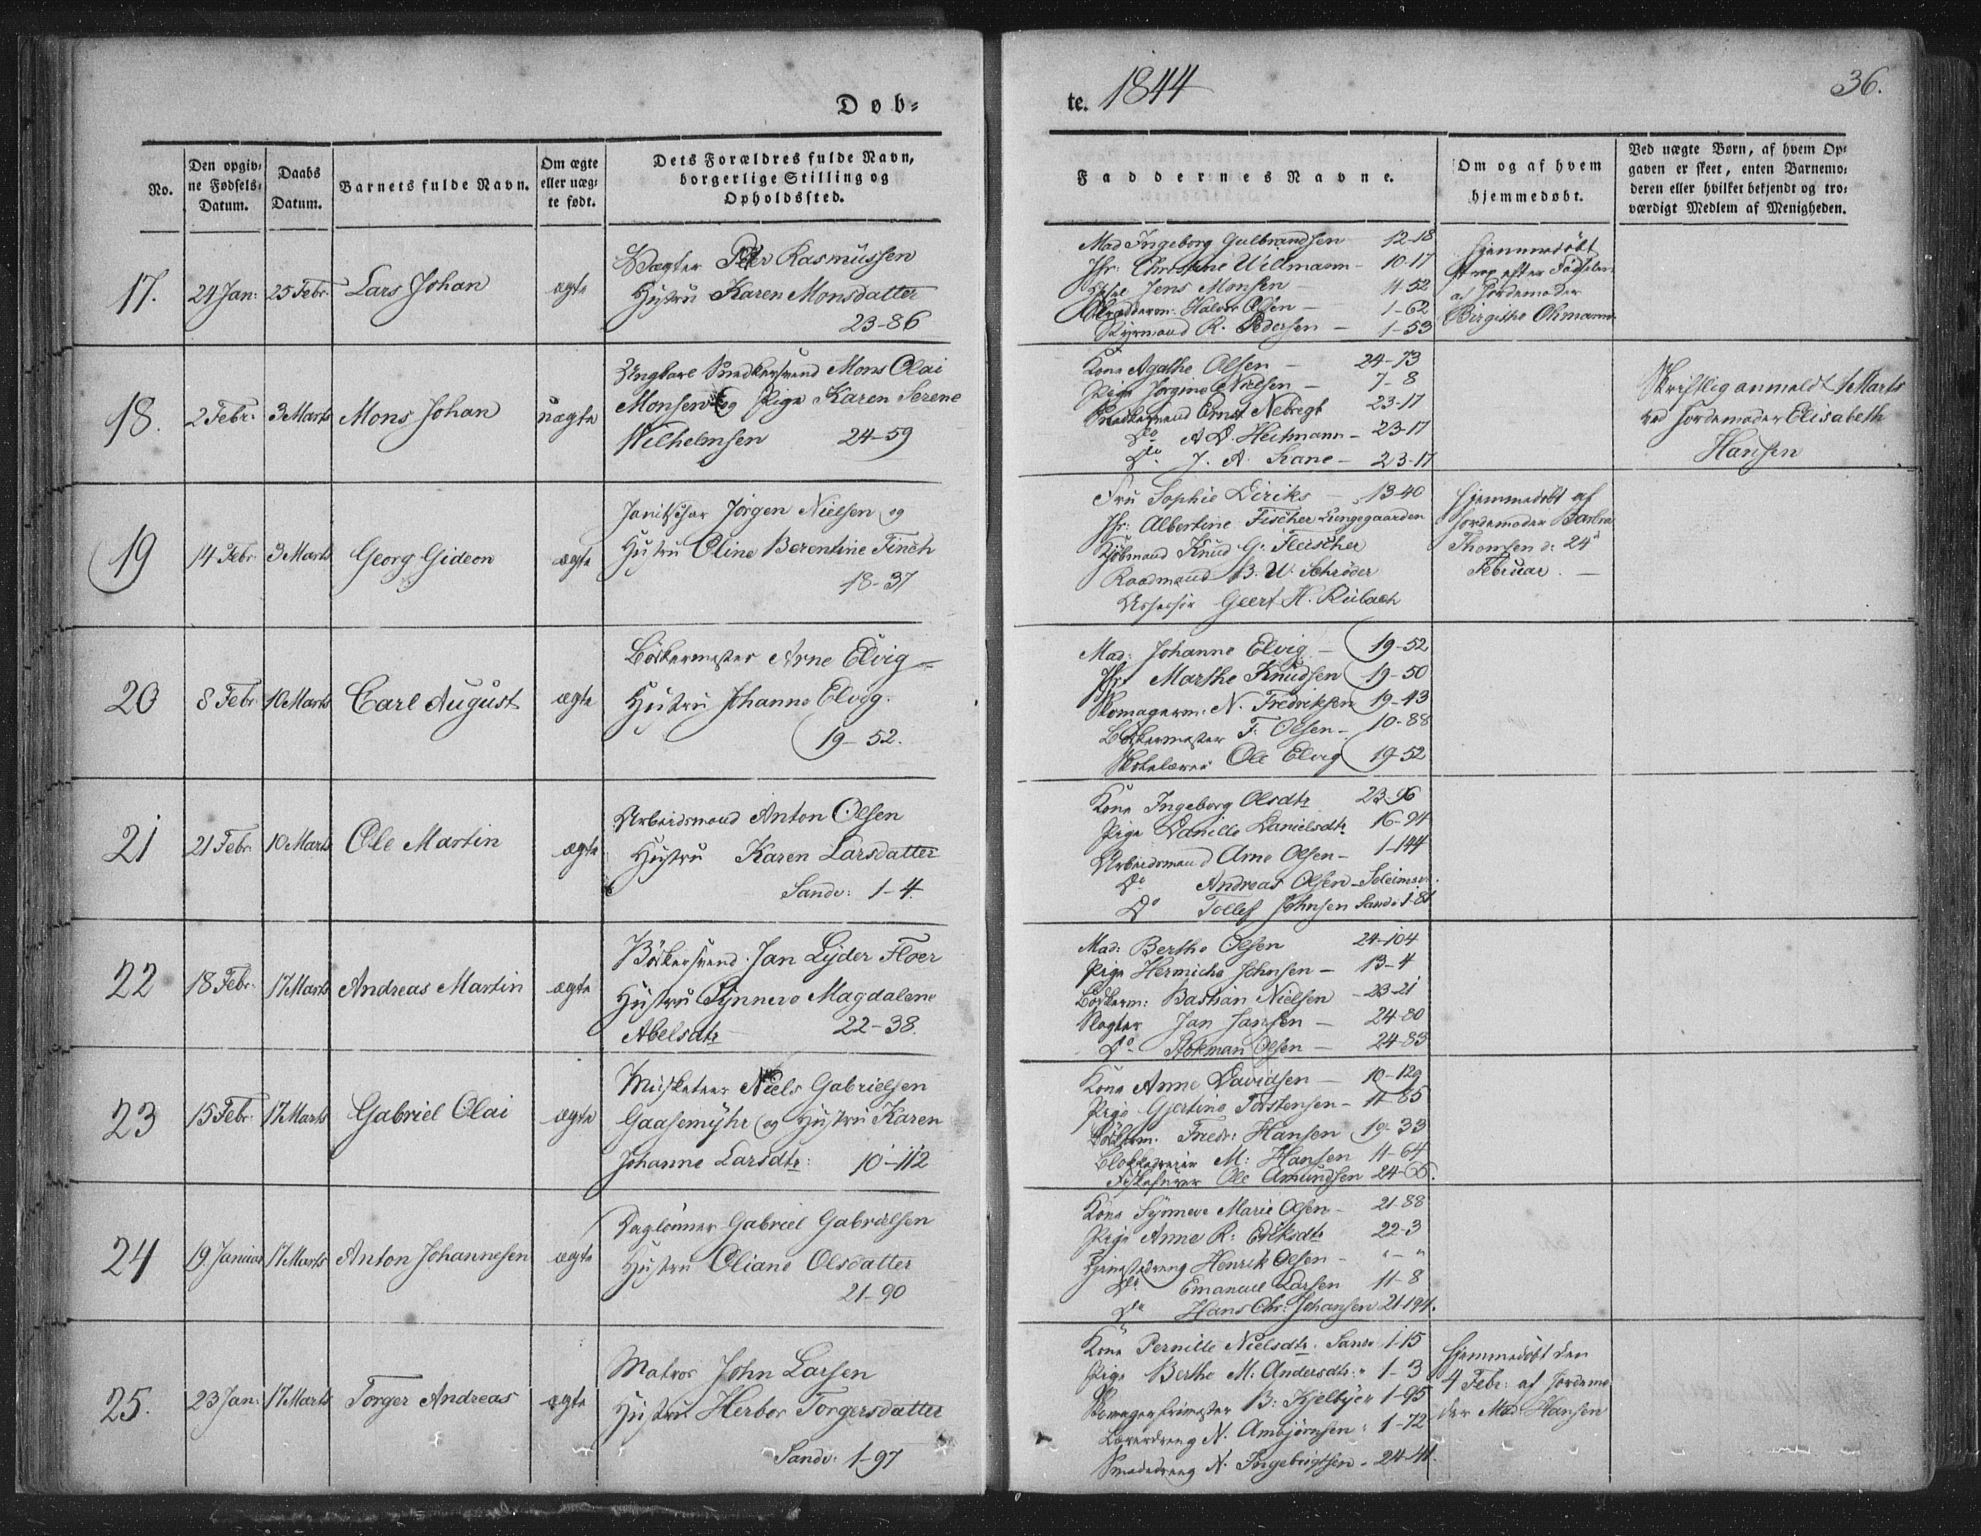 Døb=
No.
Den opgiv=
ne Fødsels=
Datum.
Daabs
Datum.
Barnets fulde Navn.
Om ægte
eller uæg=
te født.
Dets Forældres fulde Navn,
borgerlige Stilling og
Opholdssted.
17. 24 Jan: 25 Febr. Lars Johan ægte
Vægter Peter Rasmussen
Hustru Karen Monsdatter
23-86
18. 2 Febr: 3 Marts Mons Johan uægte
Ungkarl Snedkersvend Mons Olai
Monsen og Pige Karen Serene
Wilhelmsen 24-59
19 14 Febr 3 Marts Georg Gideon ægte
Janitschar Jörgen Nielsen og
Hustru Oline Berentine Finch
18-37
20 8 Febr 10 Marts Carl August ægte
Bödkermester Arne Elvig
Hustru Johanne Elvig.
19-52.
21 21 Febr. 10 Marts Ole Martin ægte
Arbeidsmand Anton Olsen
Hustru Karen Larsdatter
Sandv: 1-4.
22 18 Febr. 17 Marts Andreas Martin ægte
Bödkersvend Jan Lyder Floer
Hustru Synneve Magdalene
Abelsdtr 22-38.
23 15 Febr. 17 Marts Gabriel Olai ægte
Musketeer Niels Gabrielsen
Gaasemyhr og Hustru Karen
Johanne Larsdtr: 10-112
24 19 Januar 17 Marts Anton Johannesen ægte
Daglönner Gabriel Gabrielsen
Hustru Oliane Olsdatter
21-90
25. 23 Jan: 17 Marts Torger Andreas ægte
Matros John Larsen
Hustru Herbor Torgersdatter
Sandv: 1-97
te. 1844
36.
Faddernes Navne.
Om og af hvem
hjemmedøbt.
Ved uægte Børn, af hvem Op=
gaven er skeet, enten Barnemo=
deren eller hvilket bekjendt og tro=
værdigt Medlem af Menigheden.
Mad Ingeborg Gulbrandsen 12-18
Jfr: Christine Willmann - 10-17
Jens Monsen - 11-52
Halvor Olsen - 1-62
Styrmand R. Pedersen - 1-53
Hjemmedöbt
strax efter Födselen
af Jordemoder
Birgithe Ohmann
Kone Agathe Olsen - 24-73
Pige Jorgine Nielsen - 7-8
Snedkersvend Ernst Nebregt 23-17
Do A D. Heitmann - 23-17
Do. J. A. Kane - 23-17
Skriftlig anmeldt 1 Marts
ved Jordemoder Elisabeth
Hansen
Fru Sophie Diriks - 13-40
Jfr: Albertine Fischer Lungegaarden
Kjöbmand Knud G. Fleischer
Raadmand B. W. Schröder
Assessor Geert H. Reibach
Hjemmedöbt af
Jordemoder
Thomsen d: 24de
Februar. -
Mad: Johanne Elvig - 19-52
Jfr Marthe Knudsen 19-50
Skomagerm: N. Fredriksen 19-43
Bödkermester F. Olsen - 10-88
Ole Elvig 19-52
Kone Ingeborg Olsdtr 23-96
Pige Danille Danielsdtr. 16-94
Arbeidsmand Arne Olsen - 1-144
Do Andreas Olsen - Seleimsv.
Do Tollef Johnsen Sandv 1-81
Mad: Berthe Olsen 24-104
Pige Hermiche Johnsen - 13-4
Bödkerm: Bastian Nielsen - 23-21
Slagter Jan Jansen - 24-80
Do. Stokman Olsen - 24-83
Kone Anne Davidsen - 10-129
Pige Gjertine Torstensen - 11-85
Bödkerm. Fredr: Hansen 19-33
M: Hansen 11-64
Ole Amundsen 24-65.
Kone Synneve Marie Olsen - 21-88
Pige Anne R: Eriksdtr 22-3
Tjenestedreng Henrik Olsen - " - "
Do Emanuel Larsen 11-8
Do Hans Chr: Johansen 21-194.
Kone Pernille Nielsdtr. Sandv 1-15
Pige Berthe M. Andersdtr: " 1-3
B: Kjelbye " 1-95
N. Ambjörnsen : 1-72
Smededreng N. Ingebrigtsen - 24-41.
Hjemmedöbt den
4 Febr: af Jordemo
der Mad. Hansen